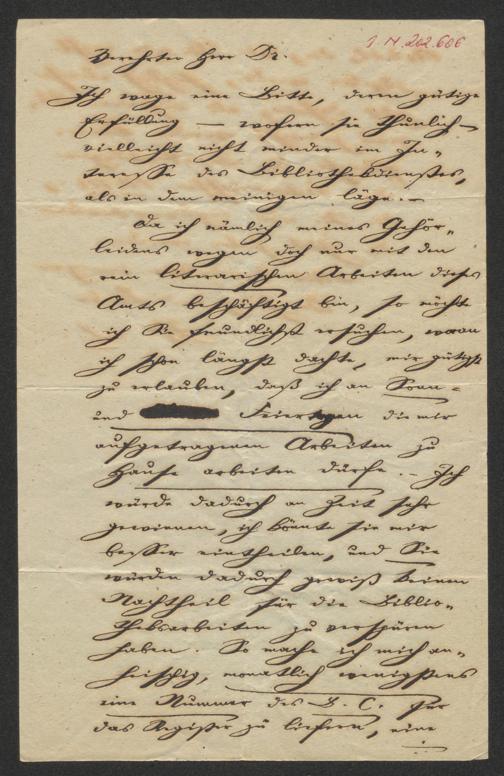 I N. 202.686
Verehrter Herr Dr.
Ich wage eine Bitte, deren gütige
Erfüllung — wofern sie thunlich —
vielleicht nicht minder im In-
teresse des Bibliotheksdienstes,
als in dem meinigen läge. —
Da ich nämlich meines Gehör-
leidens wegen doch nur mit den
rein literarischen Arbeiten dieses
Amts beschäftigt bin, so möchte
ich Sie freundlichst ersuchen, woran
ich schon längst dachte, mir gütigst
zu erlauben, daß ich an Sonn-
und Feiertagen die mir
aufgetragenen Arbeiten zu
Hause arbeiten dürfe. — Ich
würde dadurch an Zeit sehr
gewinnen, ich könnte sie mir
besser eintheilen, und Sie
würden dadurch gewiß keinen
Nachtheil für die Biblio-
theksarbeiten zu verspüren
haben. So mache ich mich an-
heischig, monatlich wenigstens
eine Nummer des B. C. für
das Register zu liefern, eine